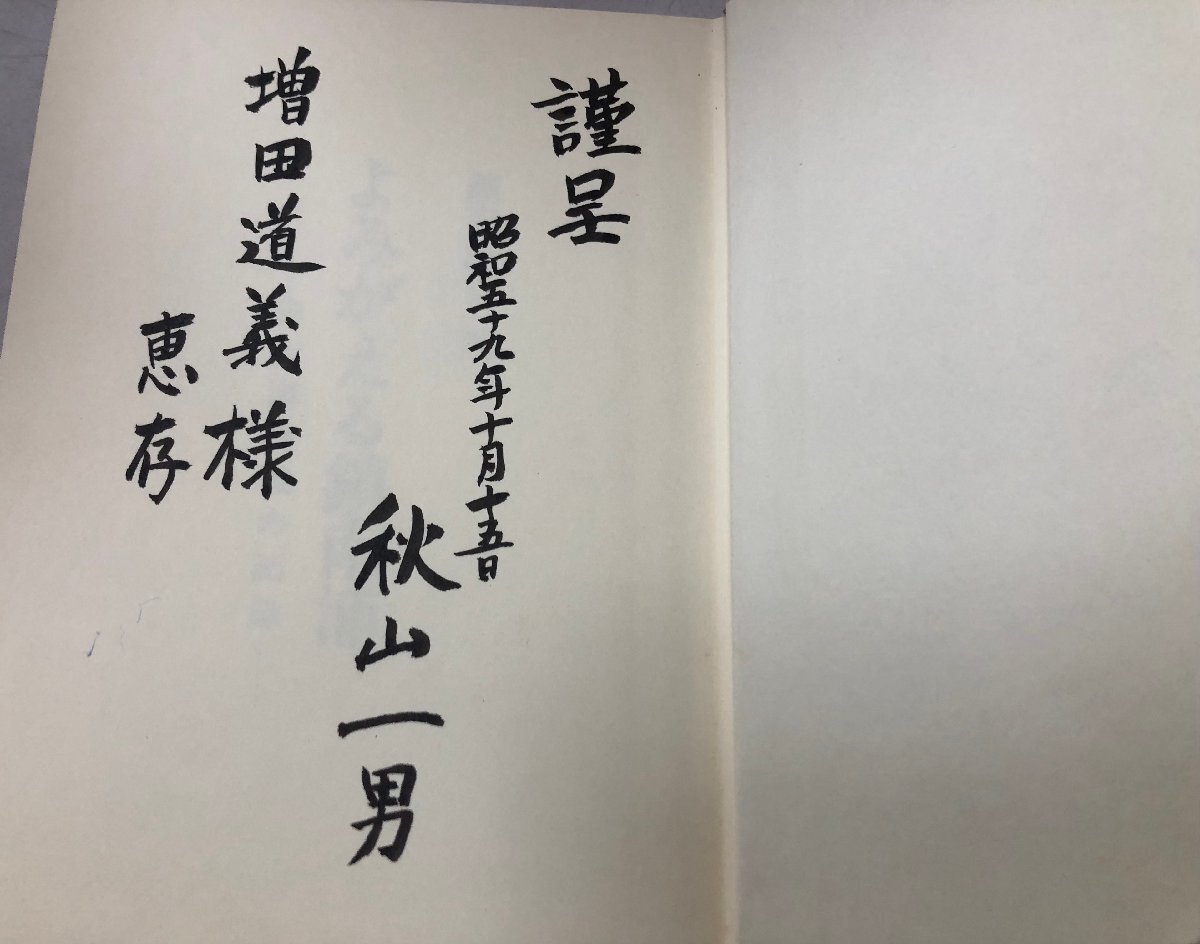 謹呈
昭和五十九年十月十五日
秋山一男
増田道義様
恵存